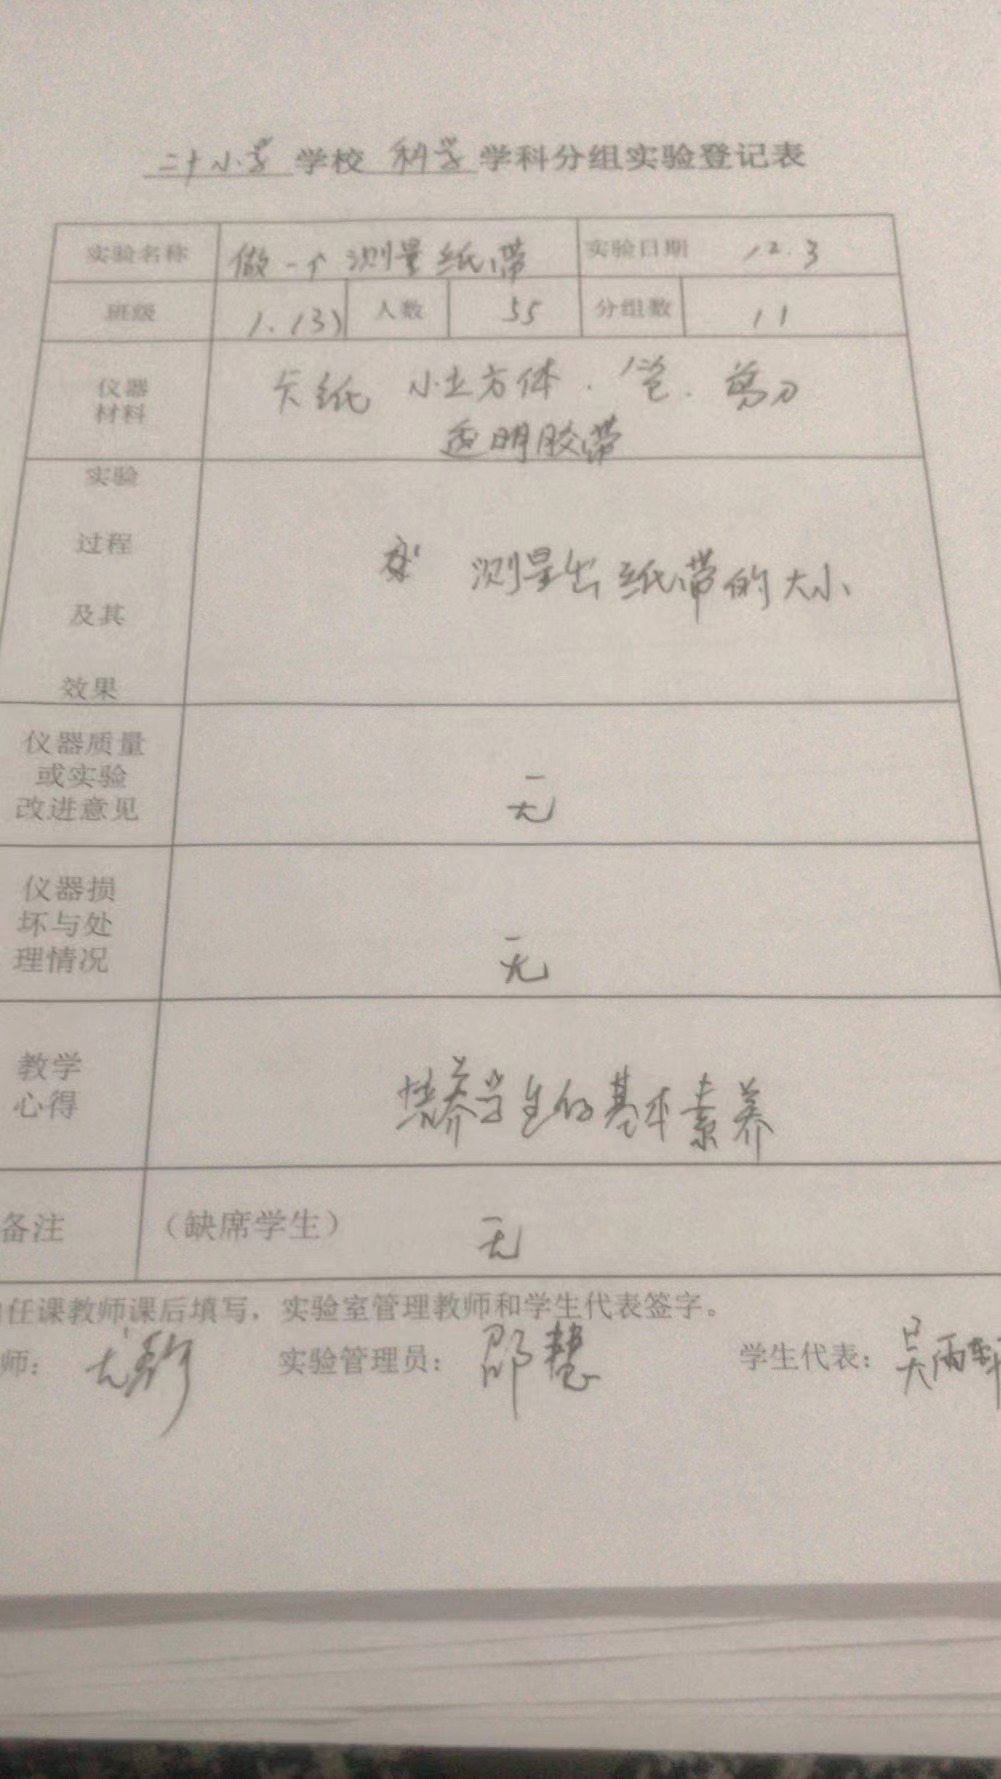 二十小学 学校 科学 学科分组实验登记表
实验名称 做一个测量纸带 实验日期 12.3
班级 1.(3) 人数 55 分组数 11
仪器材料 卡纸 小立方体. 笔. 剪刀
透明胶带
实验过程及其效果 测量出纸带的大小
仪器质量或实验改进意见 无
仪器损坏与处理情况 无
教学心得 培养学生的基本素养
备注 (缺席学生) 无
任课教师课后填写，实验室管理教师和学生代表签字。
师： 实验管理员：邵慧 学生代表：吴雨轩